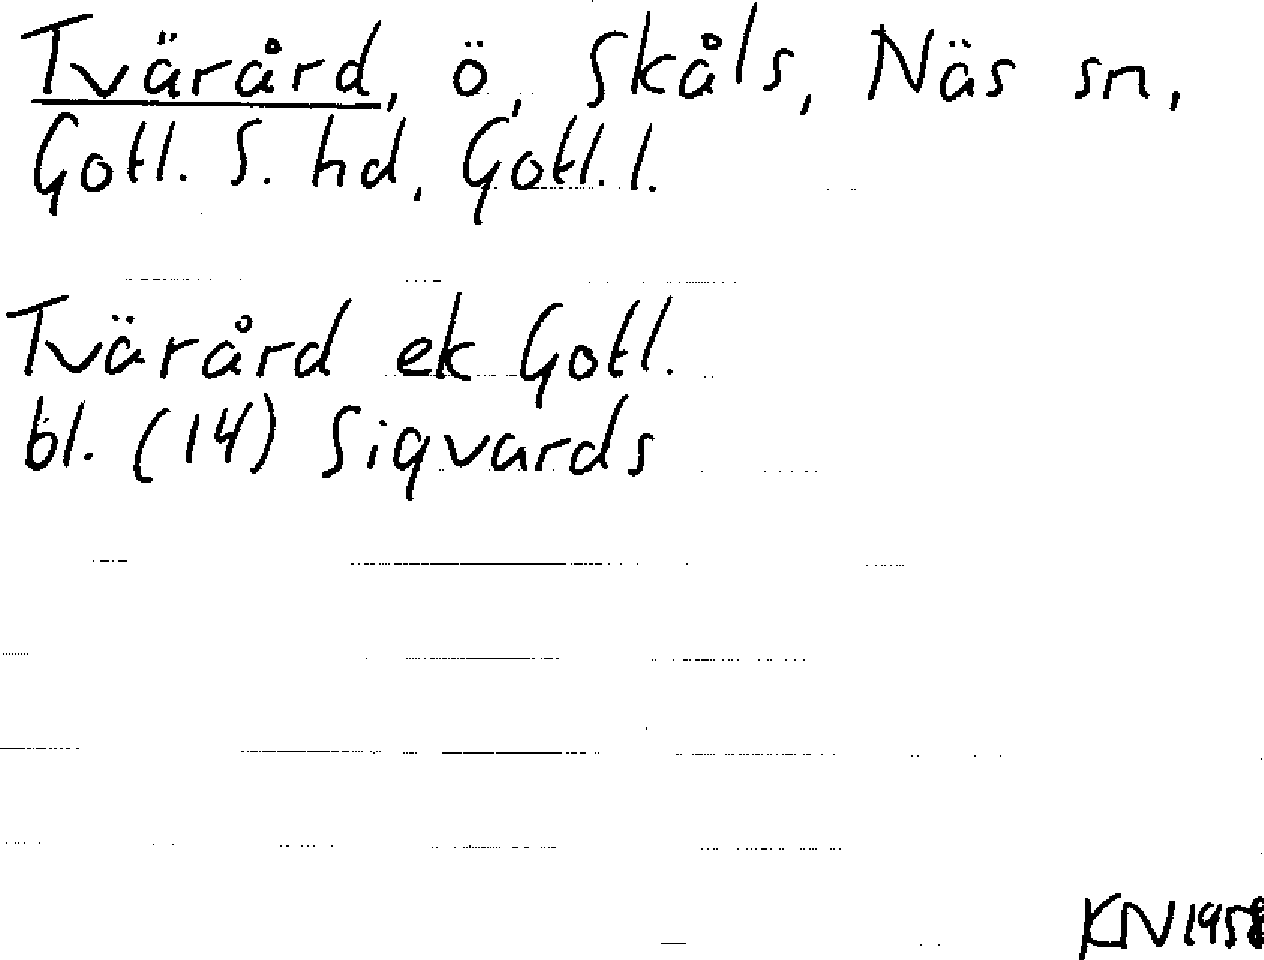 Tvärård, ö, Skåls, Näs sn,
Gotl. S. hd, Gotl. l.
Tvärård ek Gotl.
bl. (14) Sigvards
KN 1958